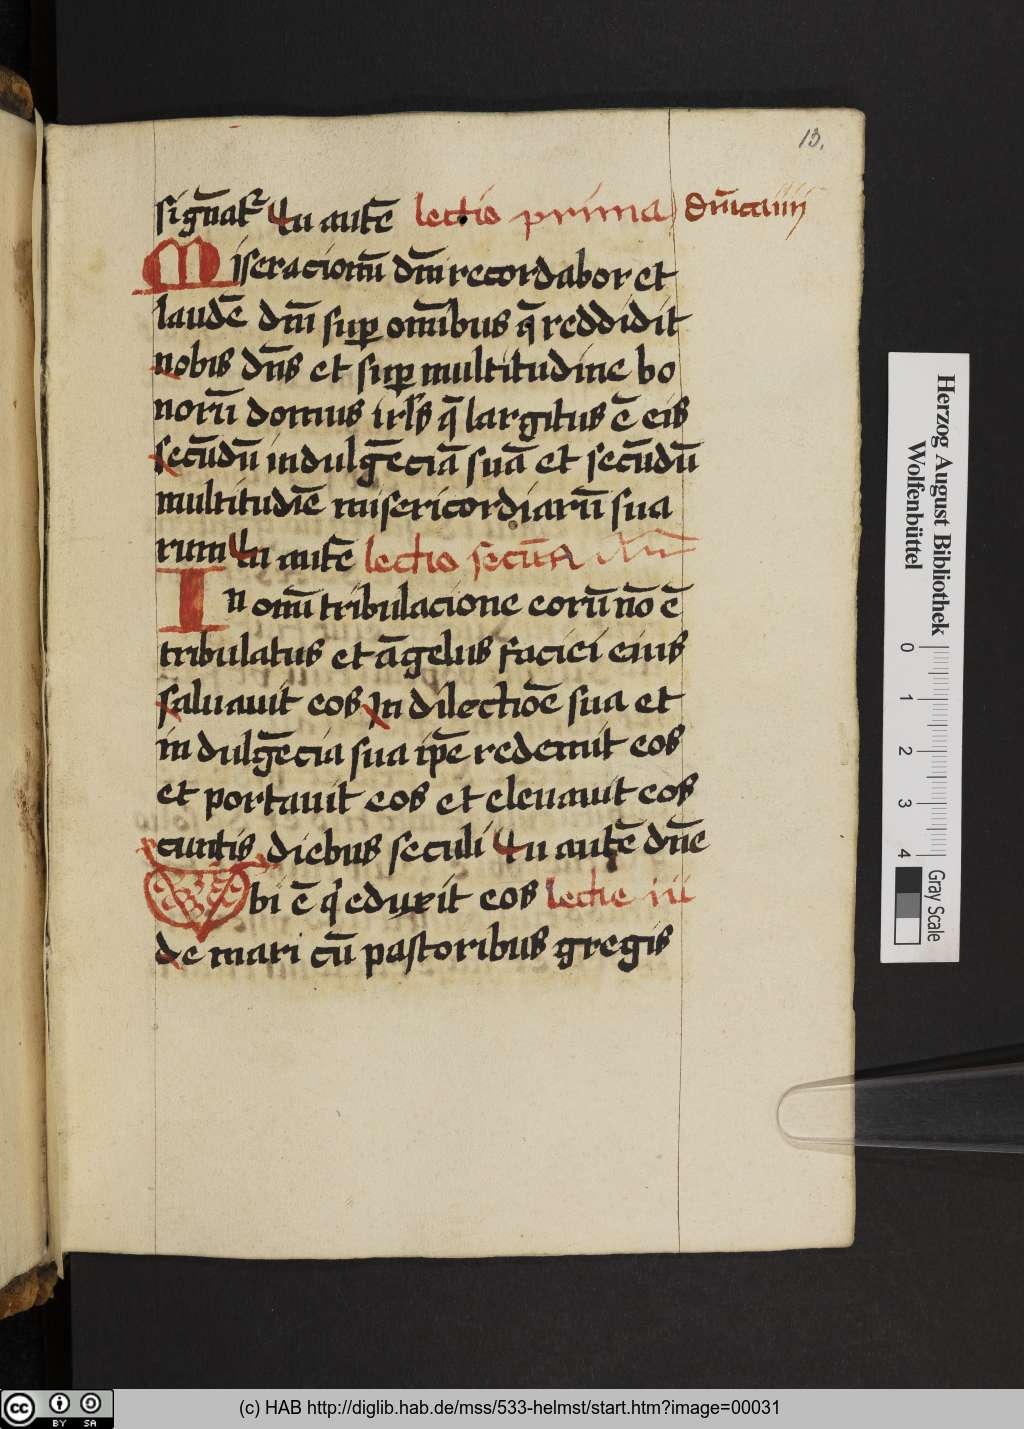 13.
sign̄at᷑ Tu autē lectio prima dn̄ica iiii
Miseracionū dn̄i recordabor et
laudē dn̄i suꝑ om̄ibus q̄ reddidit
nobis dn̄s et suꝑ multitudine bo
norū domus irl̄is q̄ largitus ē eis
secūdū indulgēciā suā et secūdū
multitudīe misericordiarū sua
rum Tu autē lectio secūda
In omī tribulacione eorū nō ē
tribulatus et āgelus faciei eius
saluauit eos In dilectiōe sua et
in dulgēcia sua ip̄e redemit eos
et portauit eos et eleuauit eos
cuntis diebus seculi Tu autē dn̄e
Vbi ē qͥ eduxit eos lectie iii
de mari cū pastoribus gregis
Herzog August Bibliothek
Wolfenbüttel
0 1 2 3 4
Gray Scale
cc BY SA
(c) HAB http://diglib.hab.de/mss/533-helmst/start.htm?image=00031